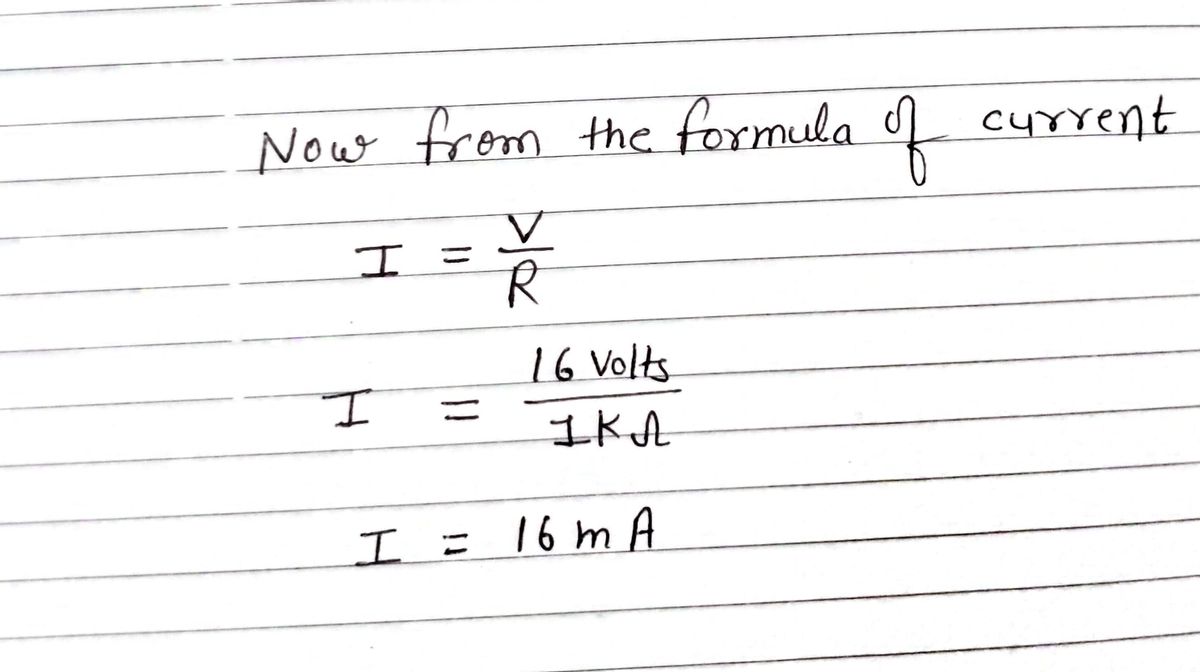 Now from the formula of current
I = V/R
I = 16 Volts/1KΩ
I = 16 mA